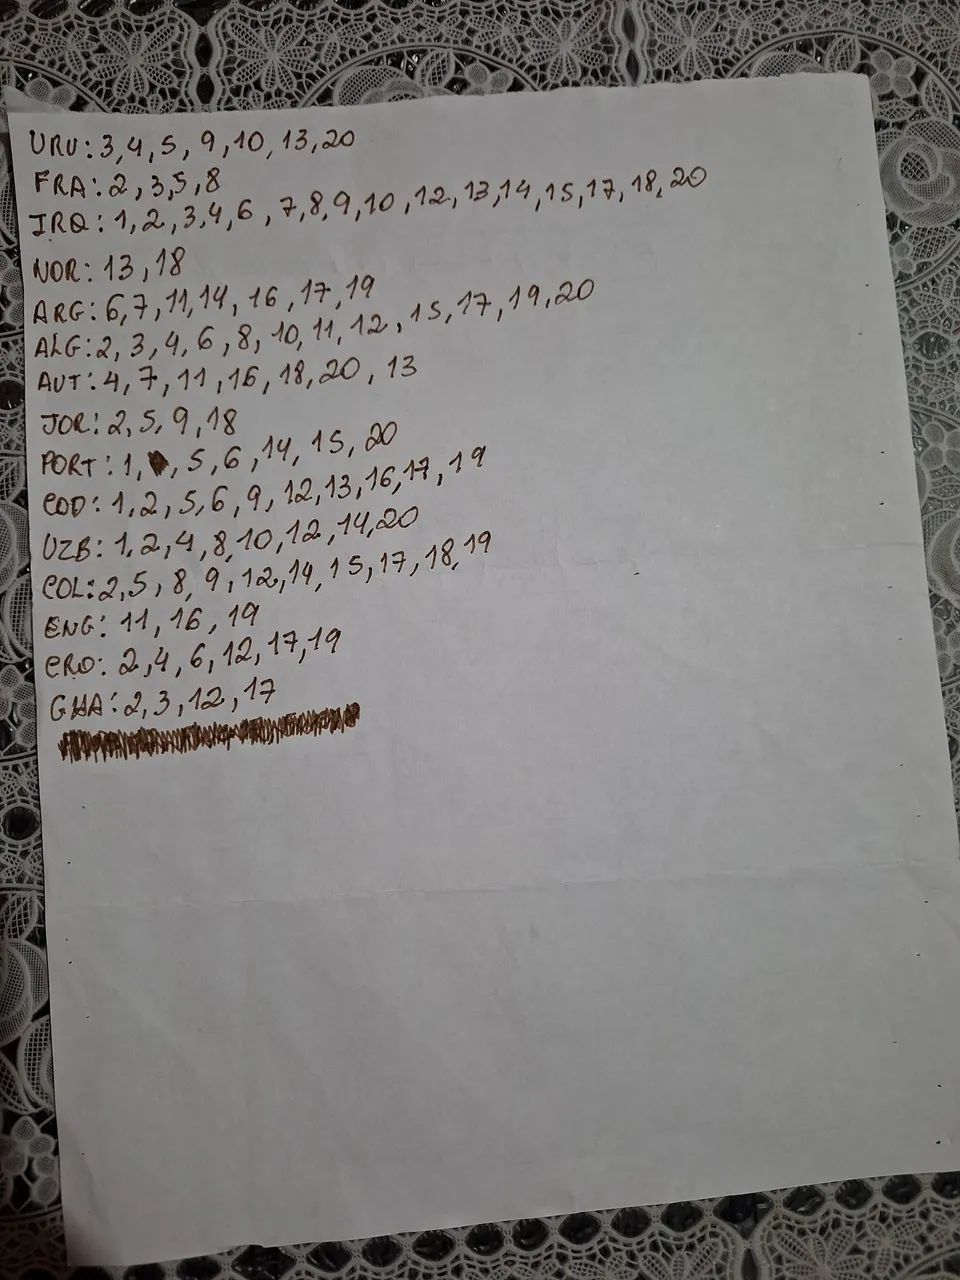 URU: 3, 4, 5, 9, 10, 13, 20
FRA: 2, 3, 5, 8
IRQ: 1, 2, 3, 4, 6, 7, 8, 9, 10, 12, 13, 14, 15, 17, 18, 20
NOR: 13, 18
ARG: 6, 7, 11, 14, 16, 17, 19
ALG: 2, 3, 4, 6, 8, 10, 11, 12, 15, 17, 19, 20
AUT: 4, 7, 11, 16, 18, 20, 13
JOR: 2, 5, 9, 18
PORT: 1, , 5, 6, 14, 15, 20
COD: 1, 2, 5, 6, 9, 12, 13, 16, 17, 19
UZB: 1, 2, 4, 8, 10, 12, 14, 20
COL: 2, 5, 8, 9, 12, 14, 15, 17, 18, 19
ENG: 11, 16, 19
CRO: 2, 4, 6, 12, 17, 19
GHA: 2, 3, 12, 17